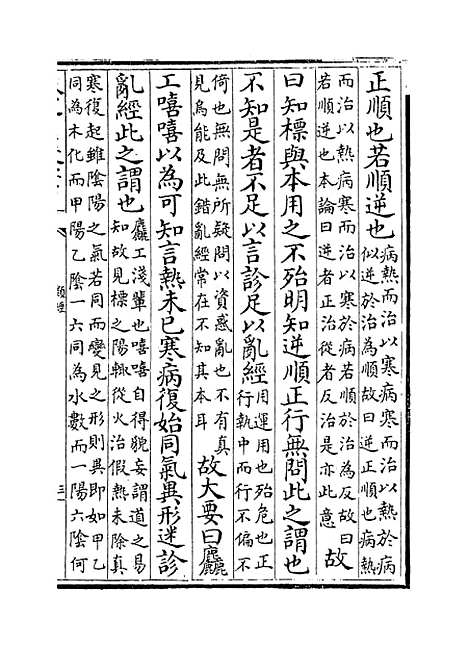 正順也若順逆也病熱而治以寒病寒而治以熱於病
似逆於治為順故曰逆正順也病熱
而治以熱病寒而治以寒於病若順於治為反故曰
若順逆也本論曰逆者正治從者反治是亦此意 故
曰知標與本用之不殆明知逆順正行無問此之謂也
不知是者不足以言診足以亂經用運用也殆危也正
行執中而行不偏不
倚也無問無所疑問以資惑亂也不有真
見烏能及此錯亂經常在不知其本耳 故大要曰麤
工嘻嘻以為可知言熱未已寒病復始同氣異形迷診
亂經此之謂也麤工淺輩也嘻嘻自得貌妄謂道之易
知故見標之陽輙從火治假熱未除真
寒復起雖陰陽之氣若同而變見之形則異即如甲乙
同為木化而甲陽乙陰一六同為水數而一陽六陰何
類經